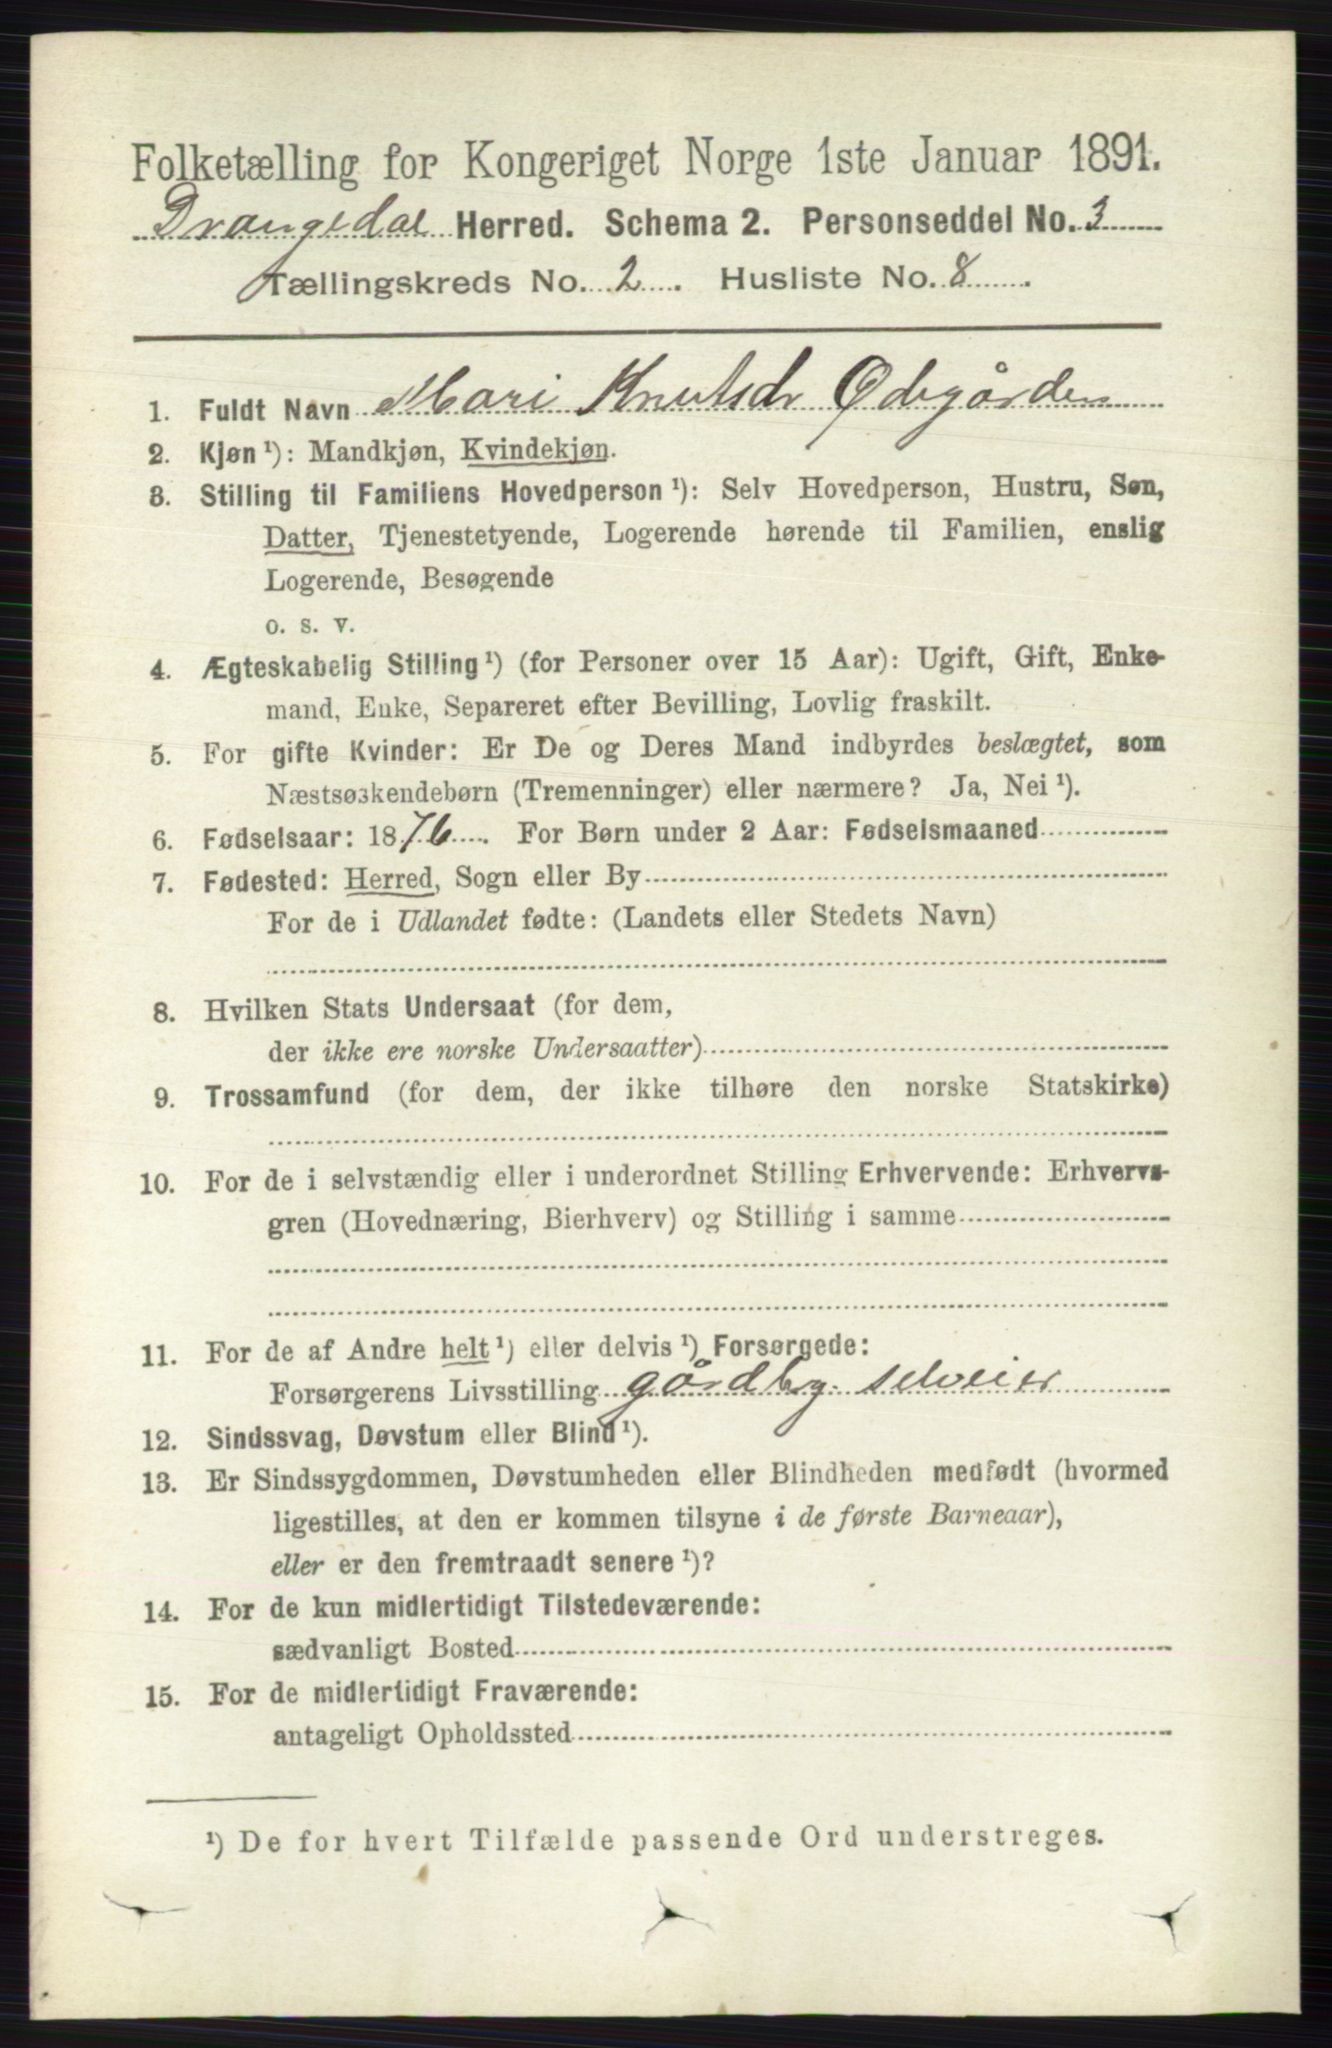 Folketælling for Kongeriget Norge 1ste Januar 1891.
Drangedal Herred. Schema 2. Personseddel No. 3
Tællingskreds No. 2. Husliste No. 8.
1. Fuldt Navn Mari Knutsdr Ødegården
2. Kjøn ¹): Mandkjøn, Kvindekjøn.
3. Stilling til Familiens Hovedperson ¹): Selv Hovedperson, Hustru, Søn,
Datter, Tjenestetyende, Logerende hørende til Familien, enslig
Logerende, Besøgende
o. s. v.
4. Ægteskabelig Stilling ¹) (for Personer over 15 Aar): Ugift, Gift, Enke-
mand, Enke, Separeret efter Bevilling, Lovlig fraskilt.
5. For gifte Kvinder: Er De og Deres Mand indbyrdes beslægtet, som
Næstsøskendebørn (Tremenninger) eller nærmere? Ja, Nei ¹).
6. Fødselsaar: 1876. For Børn under 2 Aar: Fødselsmaaned
7. Fødested: Herred, Sogn eller By
For de i Udlandet fødte: (Landets eller Stedets Navn)
8. Hvilken Stats Undersaat (for dem,
der ikke ere norske Undersaatter)
9. Trossamfund (for dem, der ikke tilhøre den norske Statskirke)
10. For de i selvstændig eller i underordnet Stilling Erhvervende: Erhvervs-
gren (Hovednæring, Bierhverv) og Stilling i samme
11. For de af Andre helt ¹) eller delvis ¹) Forsørgede:
Forsørgerens Livsstilling gårdbr. selveier
12. Sindssvag, Døvstum eller Blind ¹).
13. Er Sindssygdommen, Døvstumheden eller Blindheden medfødt (hvormed
ligestilles, at den er kommen tilsyne i de første Barneaar),
eller er den fremtraadt senere ¹)?
14. For de kun midlertidigt Tilstedeværende:
sædvanligt Bosted
15. For de midlertidigt Fraværende:
antageligt Opholdssted
¹) De for hvert Tilfælde passende Ord understreges.